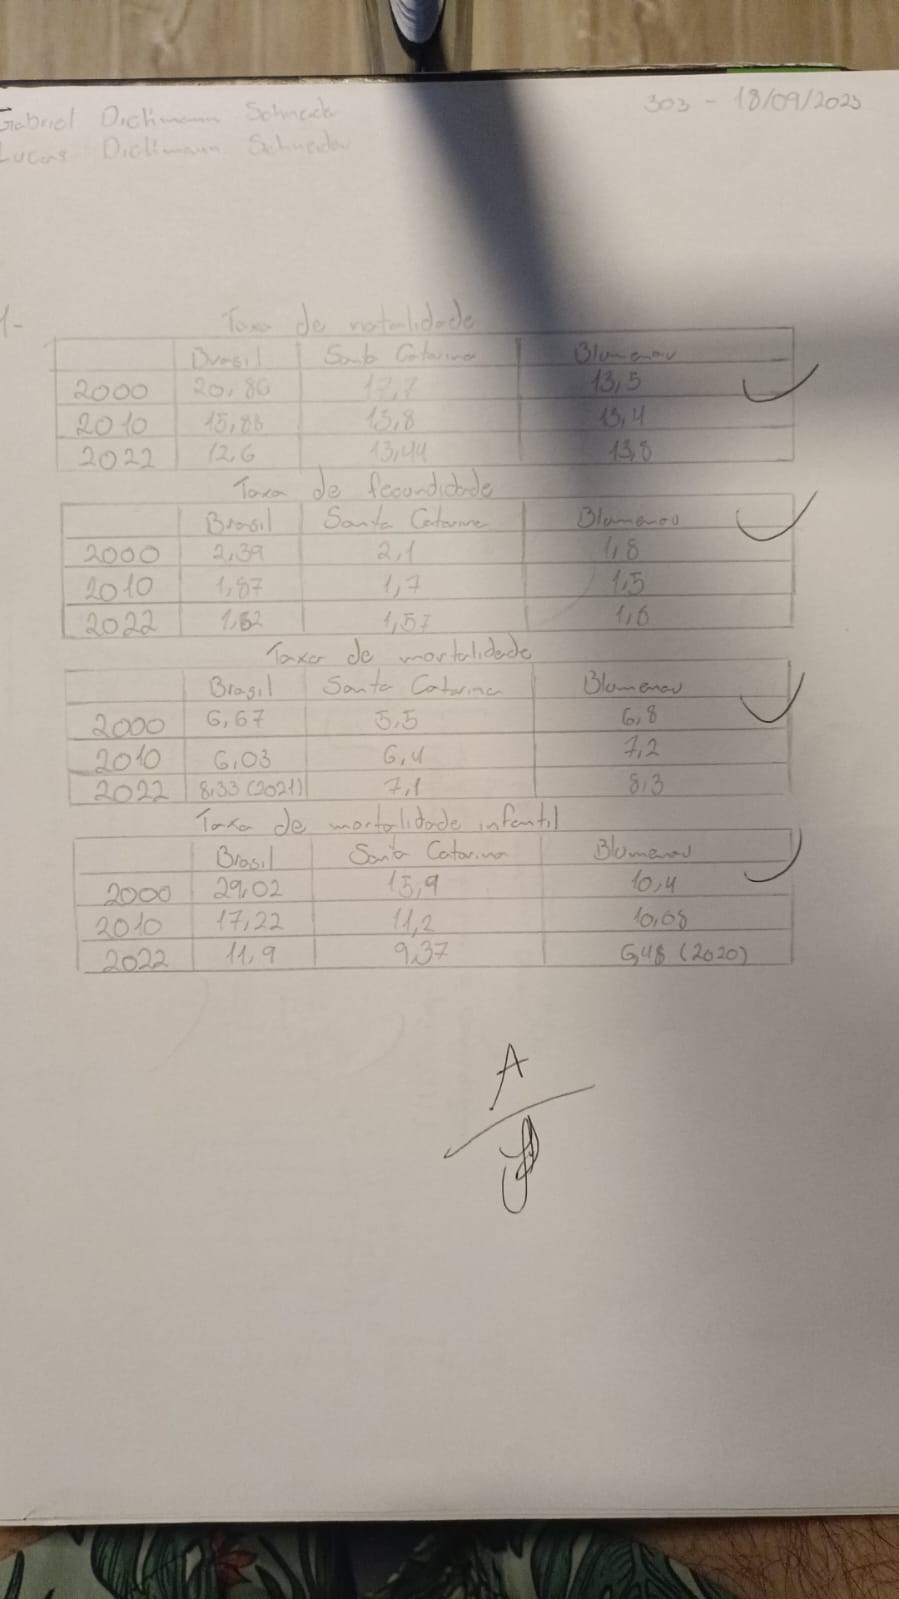 Gabriel Dickmann Schneider 303 - 18/09/2023
Lucas Dickmann Schneider
1-
Taxa de natalidade
Brasil Santa Catarina Blumenau
2000 20,86 17,7 13,5
2010 15,88 13,8 13,4
2022 12,6 13,44 13,8
Taxa de fecundidade
Brasil Santa Catarina Blumenau
2000 2,39 2,1 1,8
2010 1,87 1,7 1,5
2022 1,62 1,57 1,6
Taxa de mortalidade
Brasil Santa Catarina Blumenau
2000 6,67 5,5 6,8
2010 6,03 6,4 7,2
2022 8,33 (2021) 7,1 8,3
Taxa de mortalidade infantil
Brasil Santa Catarina Blumenau
2000 29,02 15,9 10,4
2010 17,22 11,2 10,08
2022 11,9 9,37 6,48 (2020)
A